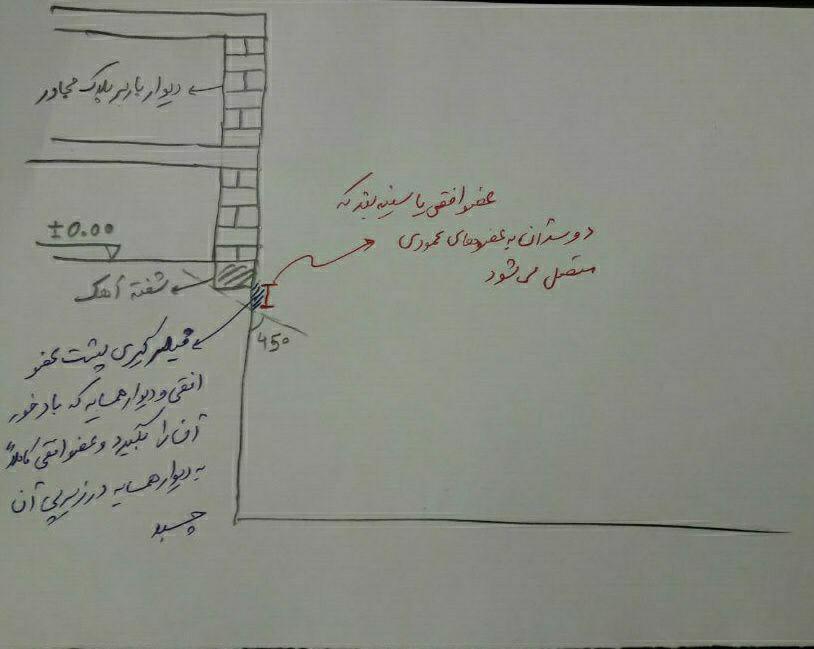 دیوار باربر پلاک مجاور
عضو افقی یا سینه بند که
دو سر آن به عضوهای عمودی
متصل می شود
±0.00
شفته آهک
45°
فیلر گیری پشت عضو
افقی و دیوار همسایه که باد خور
آن را بگیرد و عضو افقی کاملاً
به دیوار همسایه در زیر پی آن
چسبد